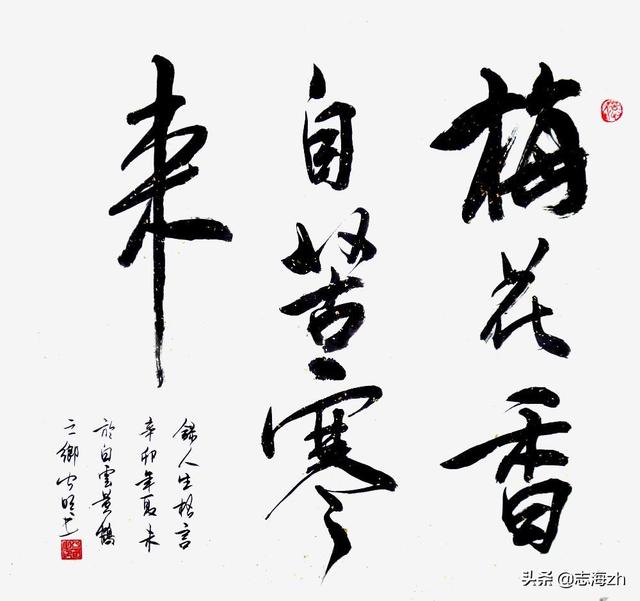 梅花香
自苦寒
来
錄人生格言
辛卯年夏末
於白雲黄鶴
之鄉
头条 @志海zh